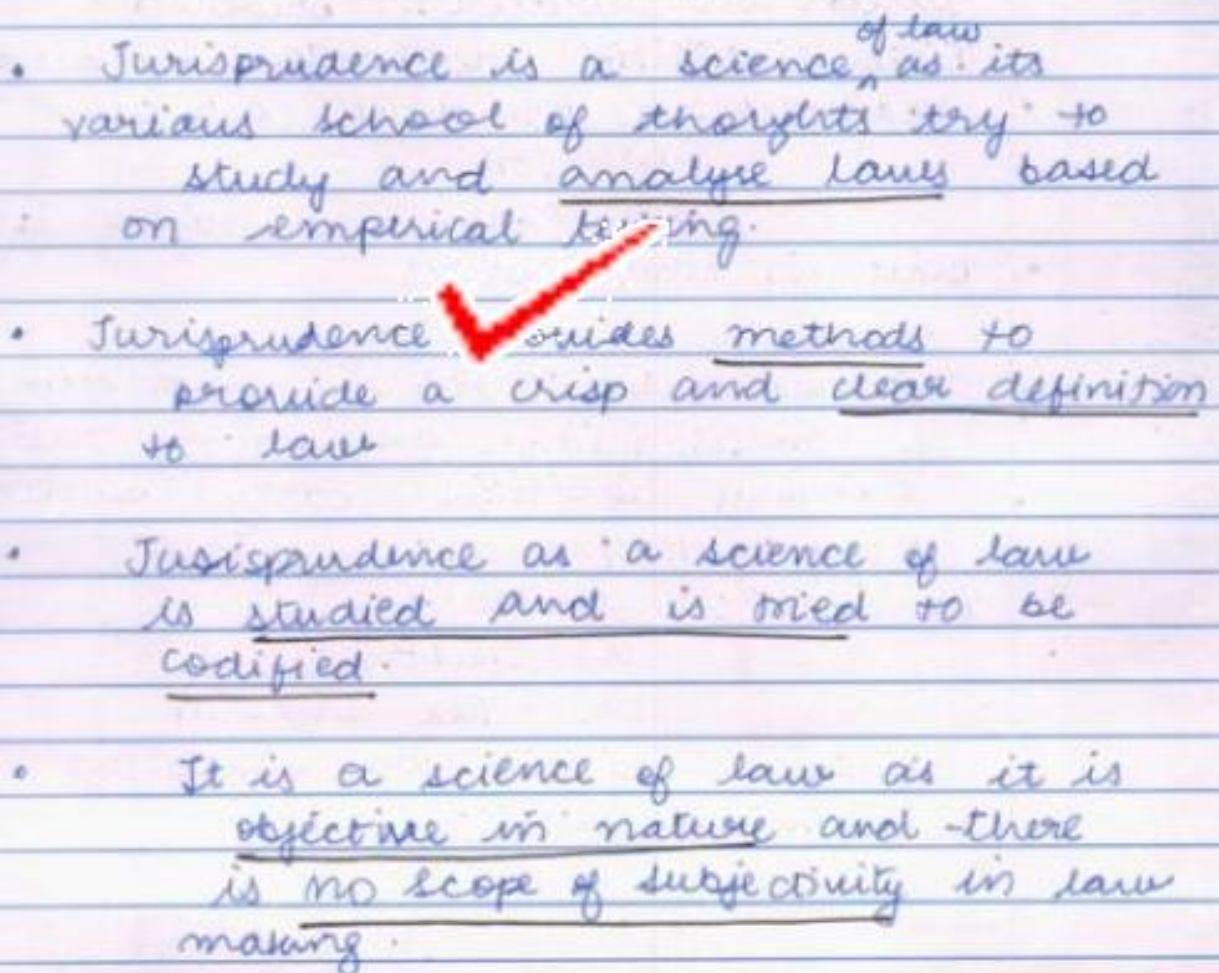 • Jurisprudence is a science ^of law as its
various school of thoughts try to
study and analyse laws based
on emperical
• Jurisprudence methods to
provide a crisp and clear definition
to law
• Jurisprudence as a science of law
is studied and is tried to be
codified.
• It is a science of law as it is
objective in nature and there
is no scope of subjectivity in law
making.